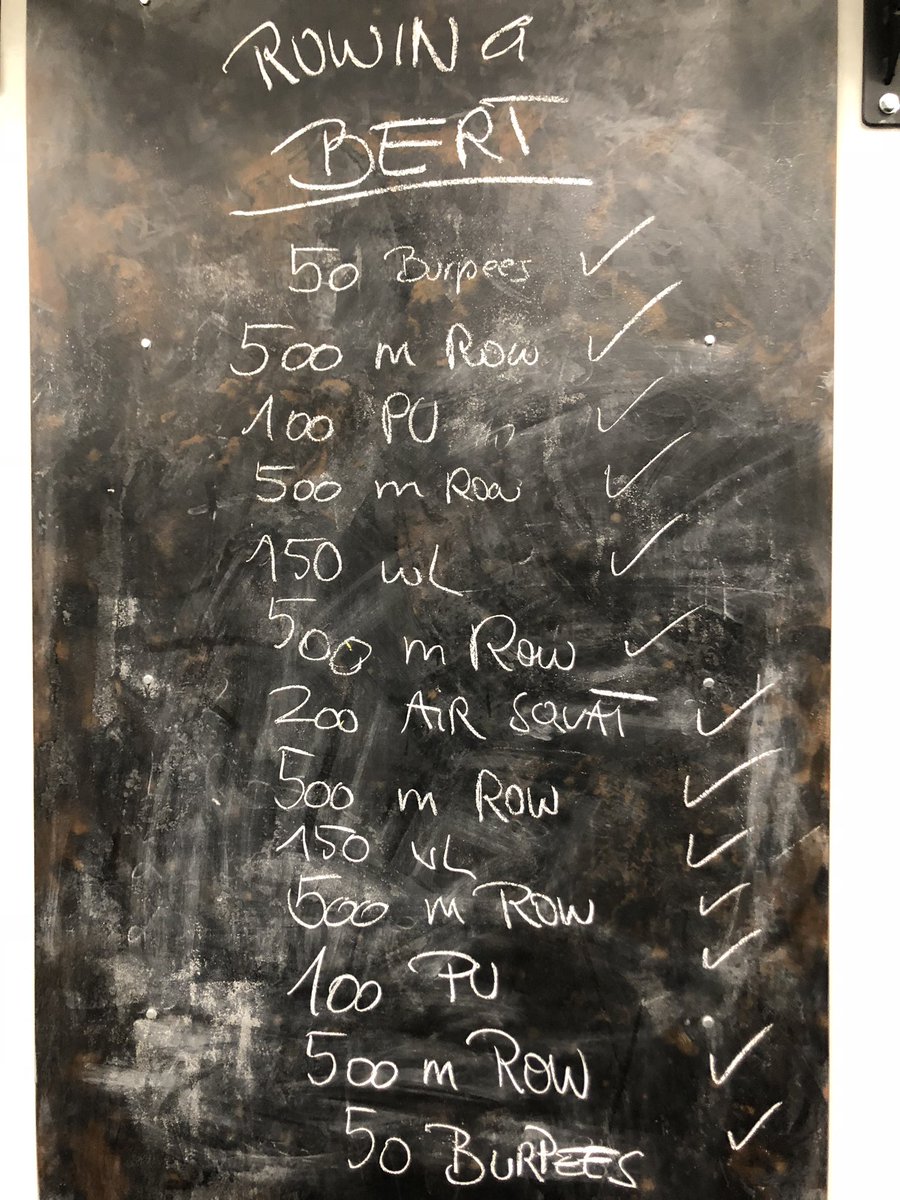 ROWING
BERT
50 Burpees ✓
500 m Row ✓
100 PU ✓
500 m Row ✓
150 WL ✓
500 m Row ✓
200 AIR SQUAT ✓
500 m Row ✓
150 WL ✓
500 m Row ✓
100 PU ✓
500 m Row ✓
50 BURPEES ✓